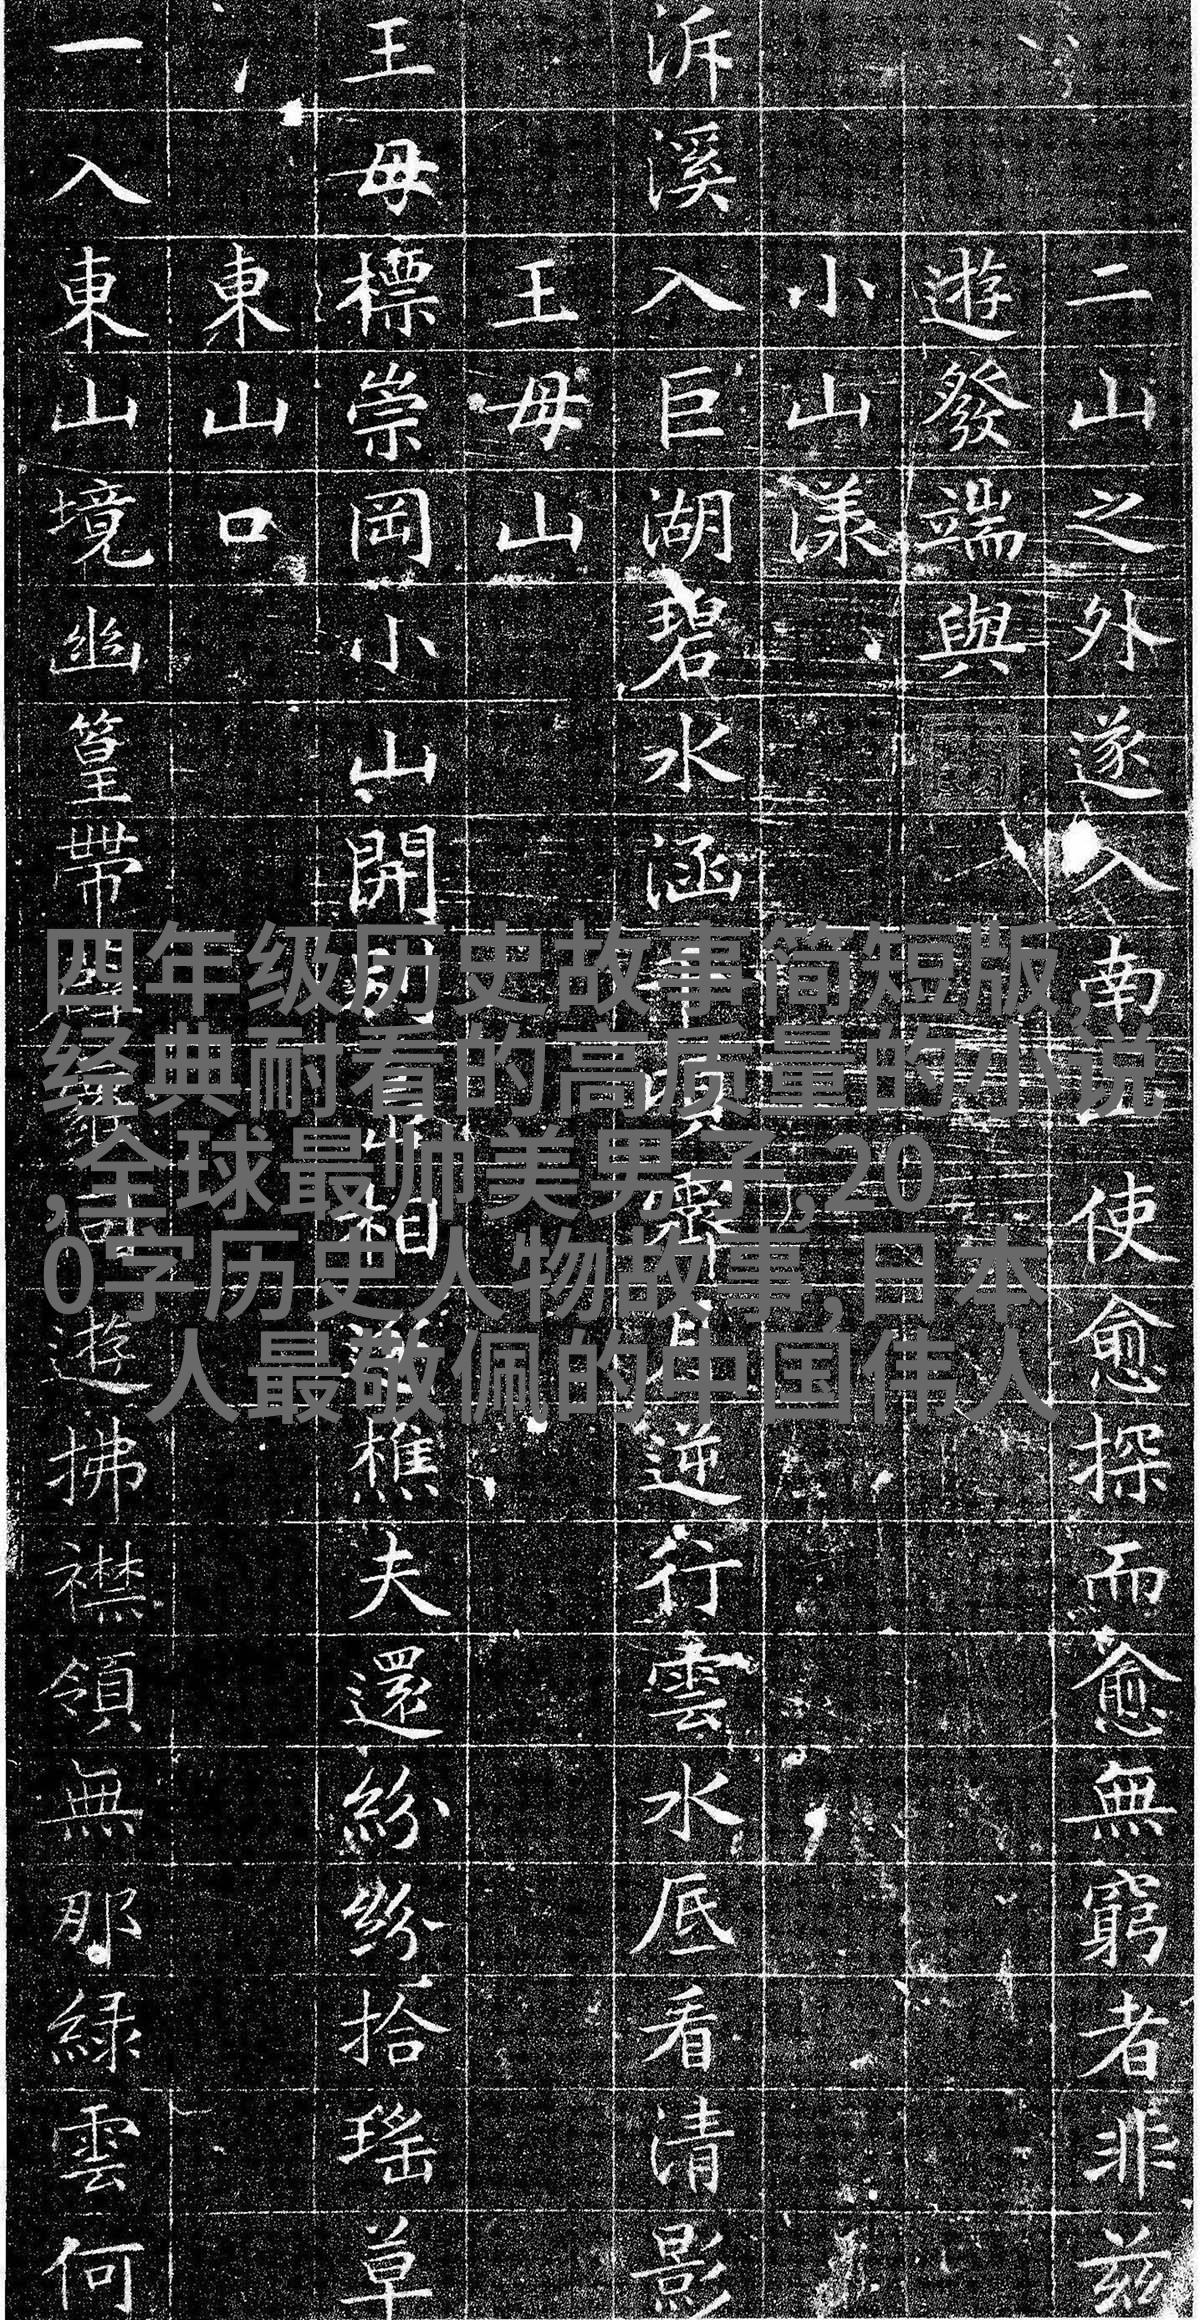 二山之外遂入南 使愈探而愈無窮者非茲
遊發端與
小山漾
泝溪入巨湖碧水涵 逆行雲水底看清影
王母山
王母標崇岡小山開 相 樵夫還紛紛拾瑤草
東山口
一入東山境幽篁帶 遊拂襟領無那綠雲何
四年级历史故事简短版,
经典耐看的高质量的小说
,全球最帅美男子,20
0字历史人物故事,日本
人最敬佩的中国伟人